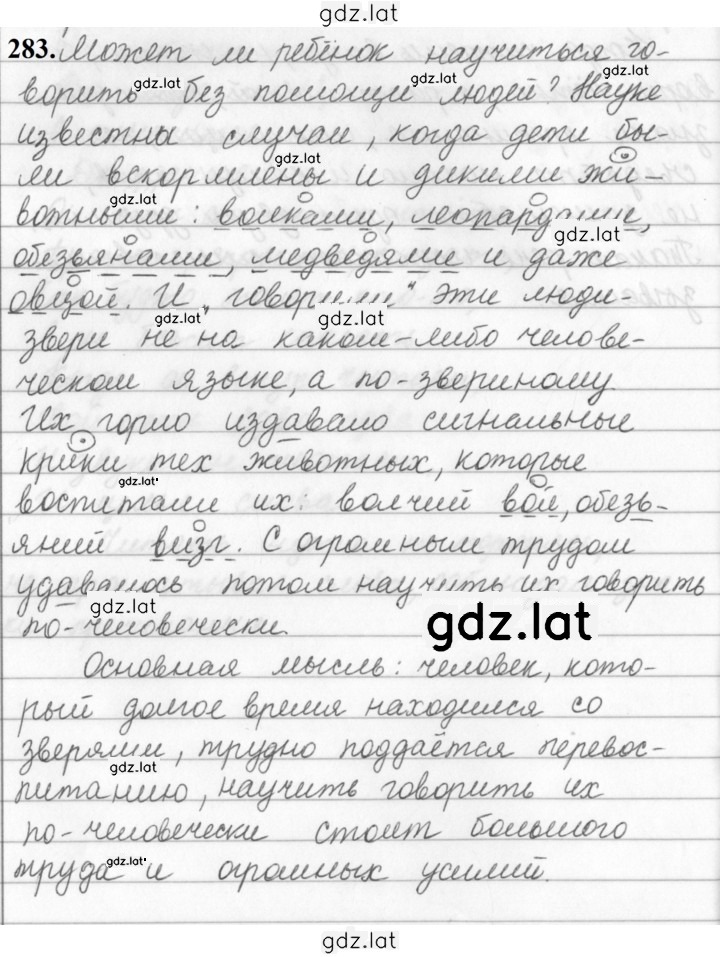 gdz.lat
283. Может ли ребёнок научиться го-
gdz.lat
ворить без помощи людей? Науке
известны случаи, когда дети бы-
gdz.lat
ли вскормлены и дикими жи-
gdz.lat
вотными: волками, леопардами,
gdz.lat
обезьянами, медведями и даже
овцой. И „говорили" эти люди-
gdz.lat gdz.lat
звери не на каком-либо челове-
ческом языке, а по-звериному.
Их горло издавало сигнальные
крики тех животных, которые
gdz.lat
воспитали их: волчий вой, обезь-
яний визг. С огромным трудом
удавалось потом научить их говорить
gdz.lat
по-человечески.
gdz.lat
Основная мысль: человек, кото-
рый долгое время находился со
зверями, трудно поддаётся перевос-
gdz.lat
питанию, научить говорить их
по-человечески стоит большого
gdz.lat
труда и огромных усилий.
gdz.lat